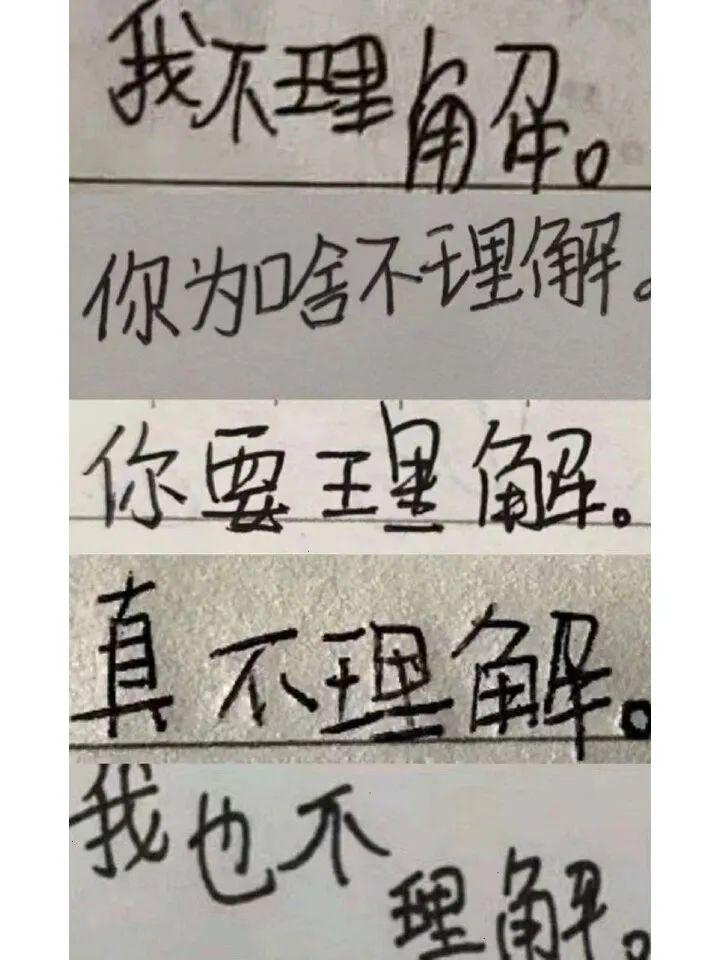 我不理解。
你为啥不理解。
你要理解。
真不理解。
我也不
理解。